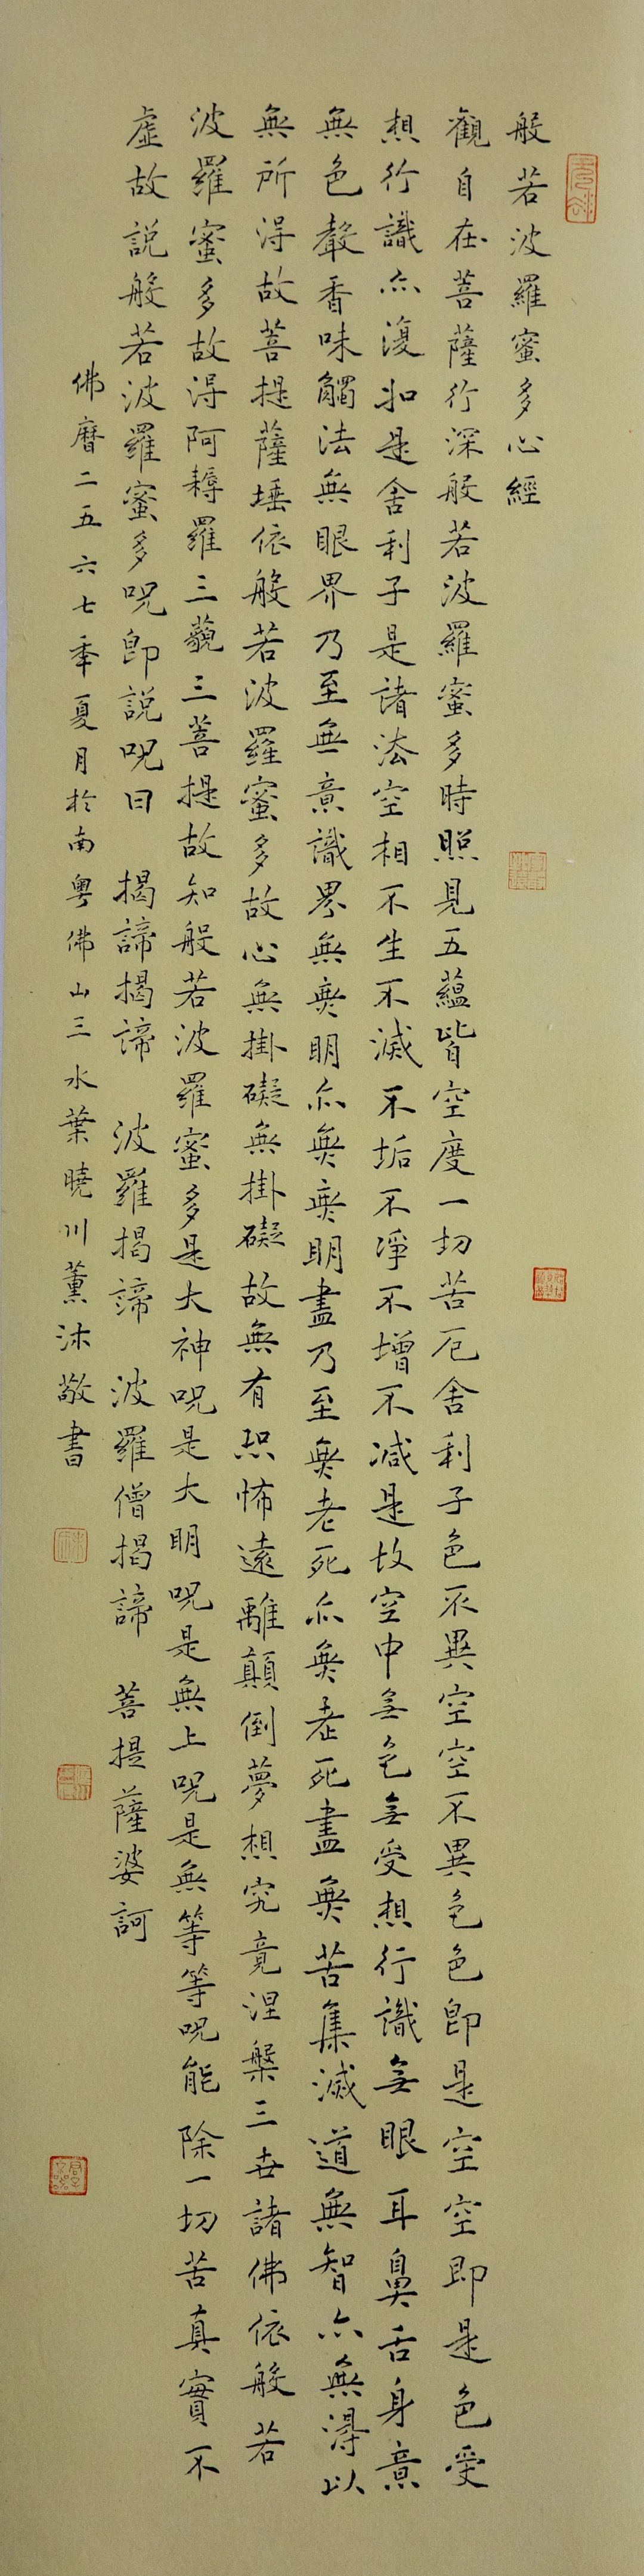 般若波羅蜜多心經
觀自在菩薩行深般若波羅蜜多時照見五蘊皆空度一切苦厄舍利子色不異空空不異色色即是空空即是色受
想行識亦復如是舍利子是諸法空相不生不滅不垢不淨不增不減是故空中無色無受想行識無眼耳鼻舌身意
無色聲香味觸法無眼界乃至無意識界無無明亦無無明盡乃至無老死亦無老死盡無苦集滅道無智亦無得以
無所得故菩提薩埵依般若波羅蜜多故心無掛礙無掛礙故無有恐怖遠離顛倒夢想究竟涅槃三世諸佛依般若
波羅蜜多故得阿耨羅三藐三菩提故知般若波羅蜜多是大神呪是大明呪是無上呪是無等等呪能除一切苦真實不
虛故說般若波羅蜜多呪即說呪曰 揭諦揭諦 波羅揭諦 波羅僧揭諦 菩提薩婆訶
佛曆二五六七年夏月於南粵佛山三水葉曉川薰沐敬書